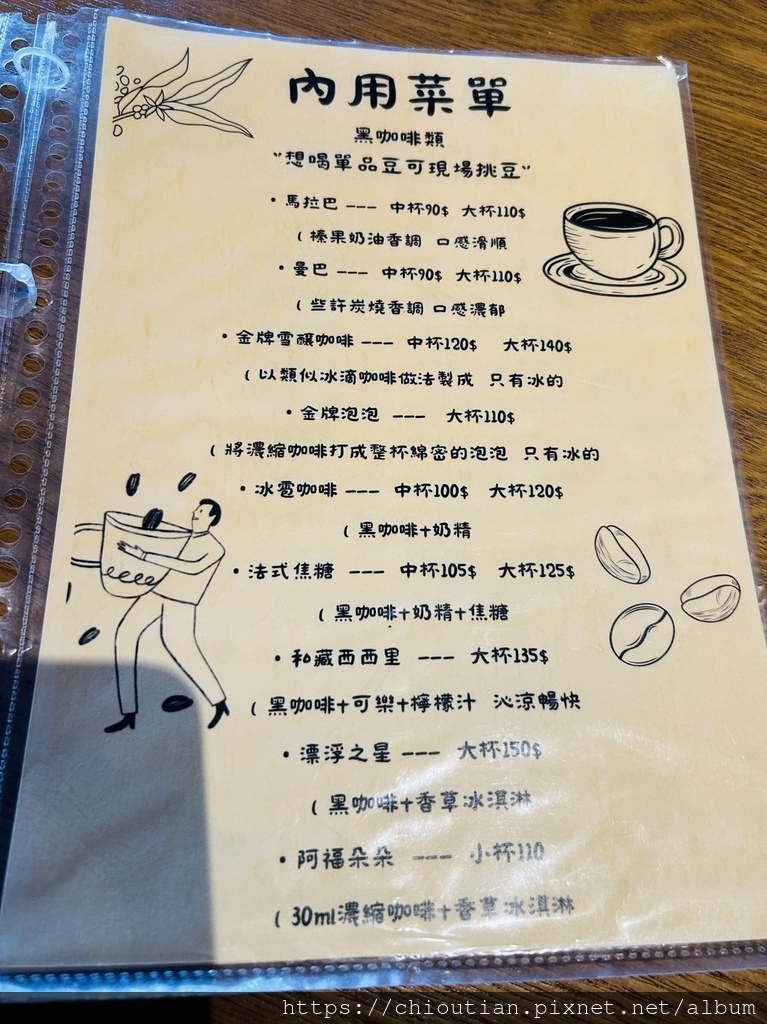 內用菜單
黑咖啡類
"想喝單品豆可現場挑豆"
・馬拉巴 --- 中杯90$ 大杯110$
( 榛果奶油香調 口感滑順
・曼巴 --- 中杯90$ 大杯110$
( 些許炭燒香調 口感濃郁
・金牌雪釀咖啡 --- 中杯120$ 大杯140$
( 以類似冰滴咖啡做法製成 只有冰的
・金牌泡泡 --- 大杯110$
( 將濃縮咖啡打成整杯綿密的泡泡 只有冰的
・冰雹咖啡 --- 中杯100$ 大杯120$
( 黑咖啡+奶精
・法式焦糖 --- 中杯105$ 大杯125$
( 黑咖啡+奶精+焦糖
・私藏西西里 --- 大杯135$
( 黑咖啡+可樂+檸檬汁 沁涼暢快
・漂浮之星 --- 大杯150$
( 黑咖啡+香草冰淇淋
・阿福朵朵 --- 小杯110
( 30ml濃縮咖啡+香草冰淇淋
https://chioutian.pixnet.net/album